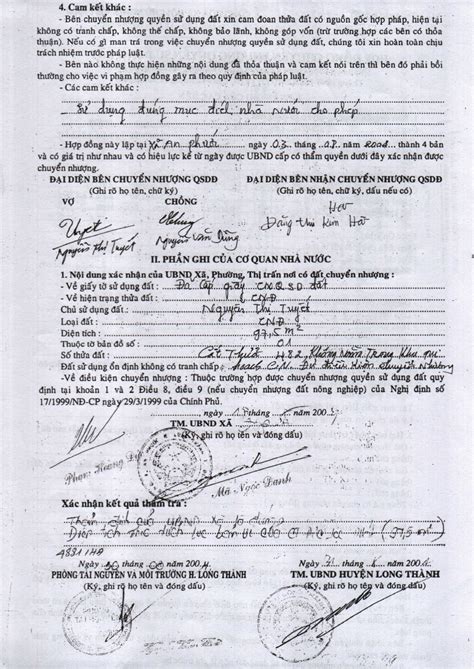 4. Cam kết khác :
- Bên chuyển nhượng quyền sử dụng đất xin cam đoan thửa đất có nguồn gốc hợp pháp, hiện tại
không có tranh chấp, không thế chấp, không bảo lãnh, không góp vốn (trừ trường hợp các bên có thỏa
thuận). Nếu có gì man trá trong việc chuyển nhượng quyền sử dụng đất, chúng tôi xin hoàn toàn chịu
trách nhiệm trước pháp luật.
- Bên nào không thực hiện những nội dung đã thỏa thuận và cam kết nói trên thì bên đó phải bồi
thường cho việc vi phạm hợp đồng gây ra theo quy định của pháp luật.
- Các cam kết khác :
Sử dụng đúng mục đích, nhà nước cho phép
- Hợp đồng này lập tại Xã An phước ngày 03 tháng năm thành 4 bản
và có giá trị như nhau và có hiệu lực kể từ ngày được UBND cấp có thẩm quyền dưới đây xác nhận được
chuyển nhượng.
ĐẠI DIỆN BÊN CHUYỂN NHƯỢNG QSDĐ ĐẠI DIỆN BÊN NHẬN CHUYỂN NHƯỢNG QSDĐ
(Ghi rõ họ tên, chữ ký) (Ghi rõ họ tên, chữ ký, dấu nếu có)
VỢ CHỒNG
Hà
Nguyễn Thị Tuyết Nguyễn Văn Dũng Đặng thị Kim Hà
II. PHẦN GHI CỦA CƠ QUAN NHÀ NƯỚC
1. Nội dung xác nhận của UBND Xã, Phường, Thị trấn nơi có đất chuyển nhượng :
- Về giấy tờ sử dụng đất : Đã cấp giấy CNQSD đất
- Về hiện trạng thửa đất : CNĐ
Chủ sử dụng đất : Nguyễn Thị Tuyết
Loại đất : CNĐ
Diện tích : 97,5m²
Thuộc tờ bản đồ số : 01
Số thửa đất : Cắt Thửa 482, Không nằm Trong Khu
Đất sử dụng ổn định không có tranh chấp :
-Về điều kiện chuyển nhượng : Thuộc trường hợp được chuyển nhượng quyền sử dụng đất quy
định tại khoản 1 và 2 Điều 8, điều 9 (nếu chuyển nhượng đất nông nghiệp) của Nghị định số
17/1999/NĐ-CP ngày 29/3/1999 của Chính Phủ.
tháng năm 200
TM. UBND XÃ
(Ký, ghi rõ họ tên và đóng dấu)
Mã Ngọc Danh
Xác nhận kết quả thẩm tra :
(97,5m²)
Ngày tháng năm 200 Ngày tháng năm 200
PHÒNG TÀI NGUYÊN VÀ MÔI TRƯỜNG H. LONG THÀNH TM. UBND HUYỆN LONG THÀNH
(Ký, ghi rõ họ tên và đóng dấu) (Ký, ghi rõ họ tên và đóng dấu)